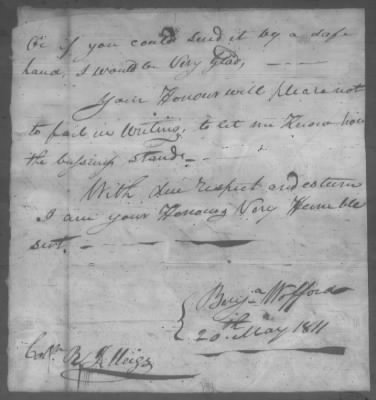 Or if you could send it by a safe
hand, I would be Very glad, — — —
Your Honour will please not
to fail in Writing, to let me Know how
the bussiness stands —
With due respect and esteem
I am your Honours Very Humble
Servt. —
Benja Wofford
20th May 1811
Colln. R J Meigs